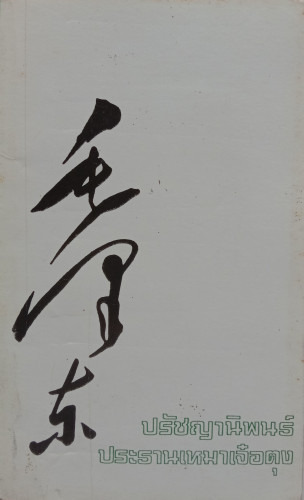 毛泽东
ปรัชญานิพนธ์
ประธานเหมาเจ๋อตุง